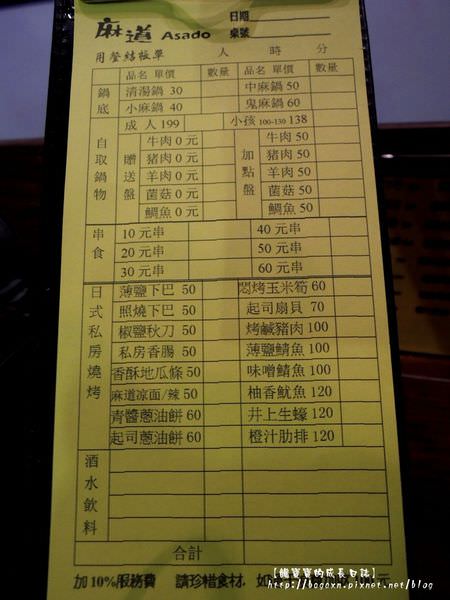 麻道 Asado 日期
桌號
用餐結帳單 人 時 分
品名 單價 數量 品名 單價 數量
鍋底 清湯鍋 30 中麻鍋 50
小麻鍋 40 鬼麻鍋 60
成 人 199 小孩 100-130 138
自取鍋物 贈送盤 牛肉 0 元 加點盤 牛肉 50
豬肉 0 元 豬肉 50
羊肉 0 元 羊肉 50
菌菇 0 元 菌菇 50
鯛魚 0 元 鯛魚 50
串食 10 元串 40 元串
20 元串 50 元串
30 元串 60 元串
日式私房燒烤 薄鹽下巴 50 悶烤玉米筍 60
照燒下巴 50 起司扇貝 70
椒鹽秋刀 50 烤鹹豬肉 100
私房香腸 50 薄鹽鯖魚 100
香酥地瓜條 50 味噌鯖魚 100
麻道凉面/辣 50 柚香魷魚 120
青醬蔥油餅 60 井上生蠔 120
起司蔥油餅 60 橙汁肋排 120
酒水飲料
合計
加 10%服務費 請珍惜食材, 如 100 元
的成長日誌
http://bogoxn.pixnet.net/blog